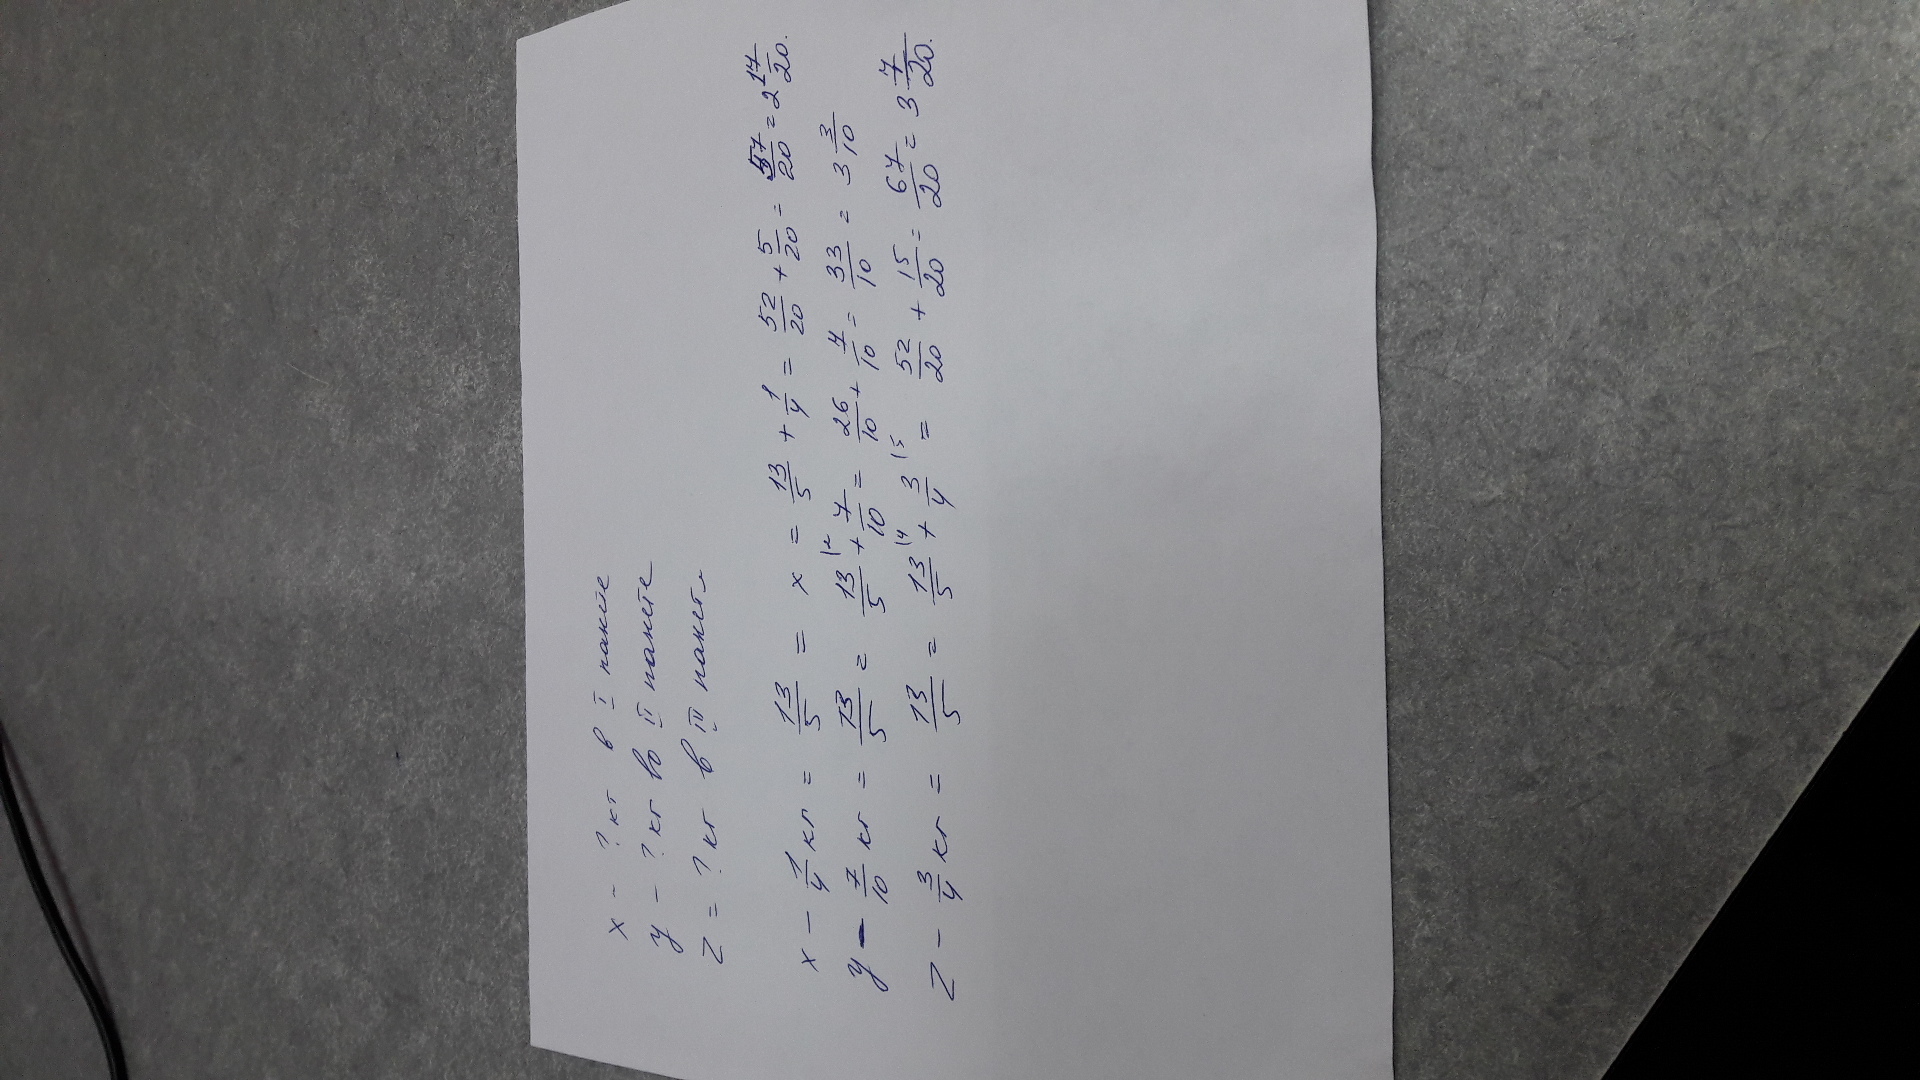 x - ? кг в I пакете
y - ? кг во II пакете
z = ? кг в III пакете
x - 1/4 кг = 13/5 = x = 13/5 + 1/4 = 52/20 + 5/20 = 57/20 = 2 17/20.
y - 7/10 кг = 13/5 = 13/5 |2 + 7/10 = 26/10 + 7/10 = 33/10 = 3 3/10
z - 3/4 кг = 13/5 = 13/5 |4 + 3/4 |5 = 52/20 + 15/20 = 67/20 = 3 7/20.